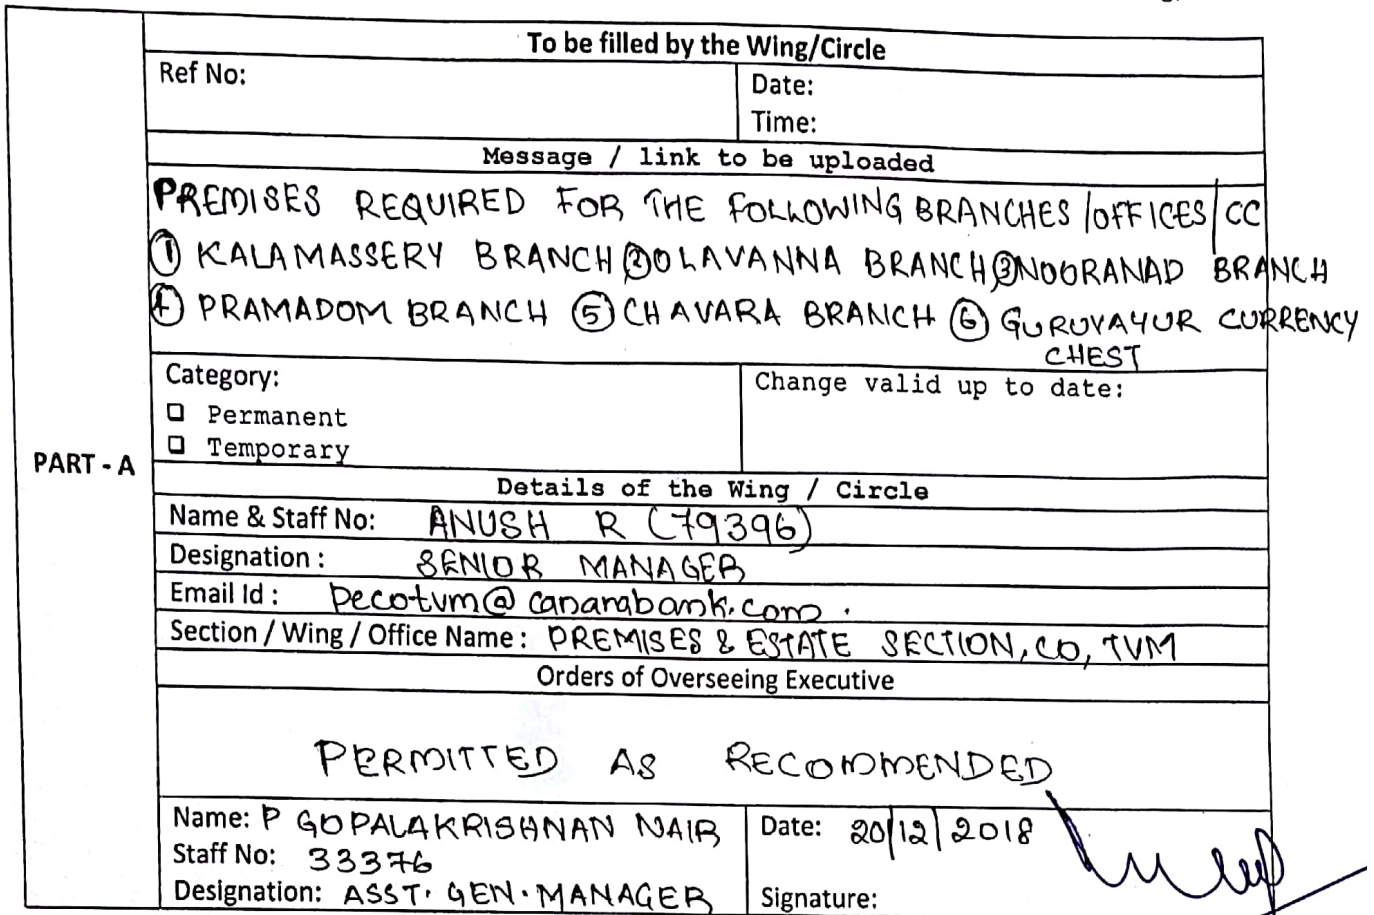 To be filled by the Wing/Circle
Ref No:
Date:
Time:
Message / link to be uploaded
PREMISES REQUIRED FOR THE FOLLOWING BRANCHES/OFFICES/CC
① KALAMASSERY BRANCH ② OLAVANNA BRANCH ③ NOORANAD BRANCH
④ PRAMADOM BRANCH ⑤ CHAVARA BRANCH ⑥ GURUVAYUR CURRENCY
CHEST
Category:
☐ Permanent
☐ Temporary
Change valid up to date:
PART - A
Details of the Wing / Circle
Name & Staff No: ANUSH R (79396)
Designation : SENIOR MANAGER
Email Id : pecotvm@canarabank.com.
Section / Wing / Office Name : PREMISES & ESTATE SECTION, CO, TVM
Orders of Overseeing Executive
PERMITTED AS RECOMMENDED
Name: P GOPALAKRISHNAN NAIR
Staff No: 33376
Designation: ASST. GEN. MANAGER
Date: 20/12/2018
Signature: